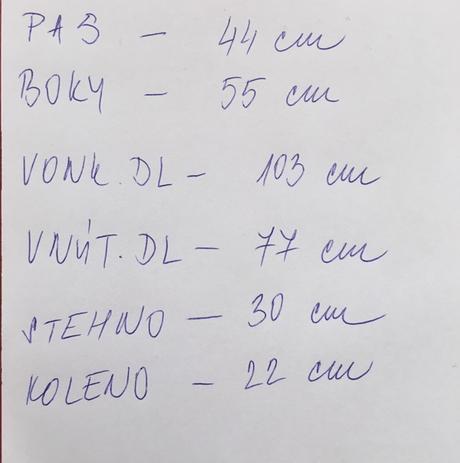 PAS - 44 cm
BOKY - 55 cm
VONK. DL - 103 cm
VNÚT. DL - 77 cm
STEHNO - 30 cm
KOLENO - 22 cm